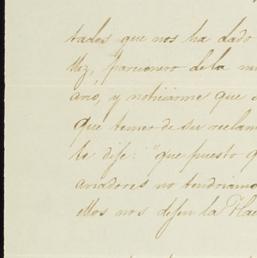 tades que nos ha dado
ttez, parcionero de la m
ano, y noticiarme que
que temer de su reclam
le dije: "que puesto q
arriadores no tendriamo
ellos nos dejen la Hac